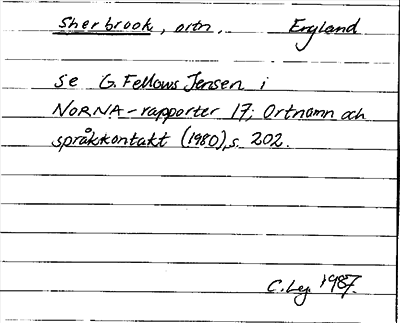 Sherbrook, ortn. England
se G. Fellows Jensen i
NORNA-rapporter 17; Ortnamn och
språkkontakt (1980), s. 202.
C. Ley 1987.